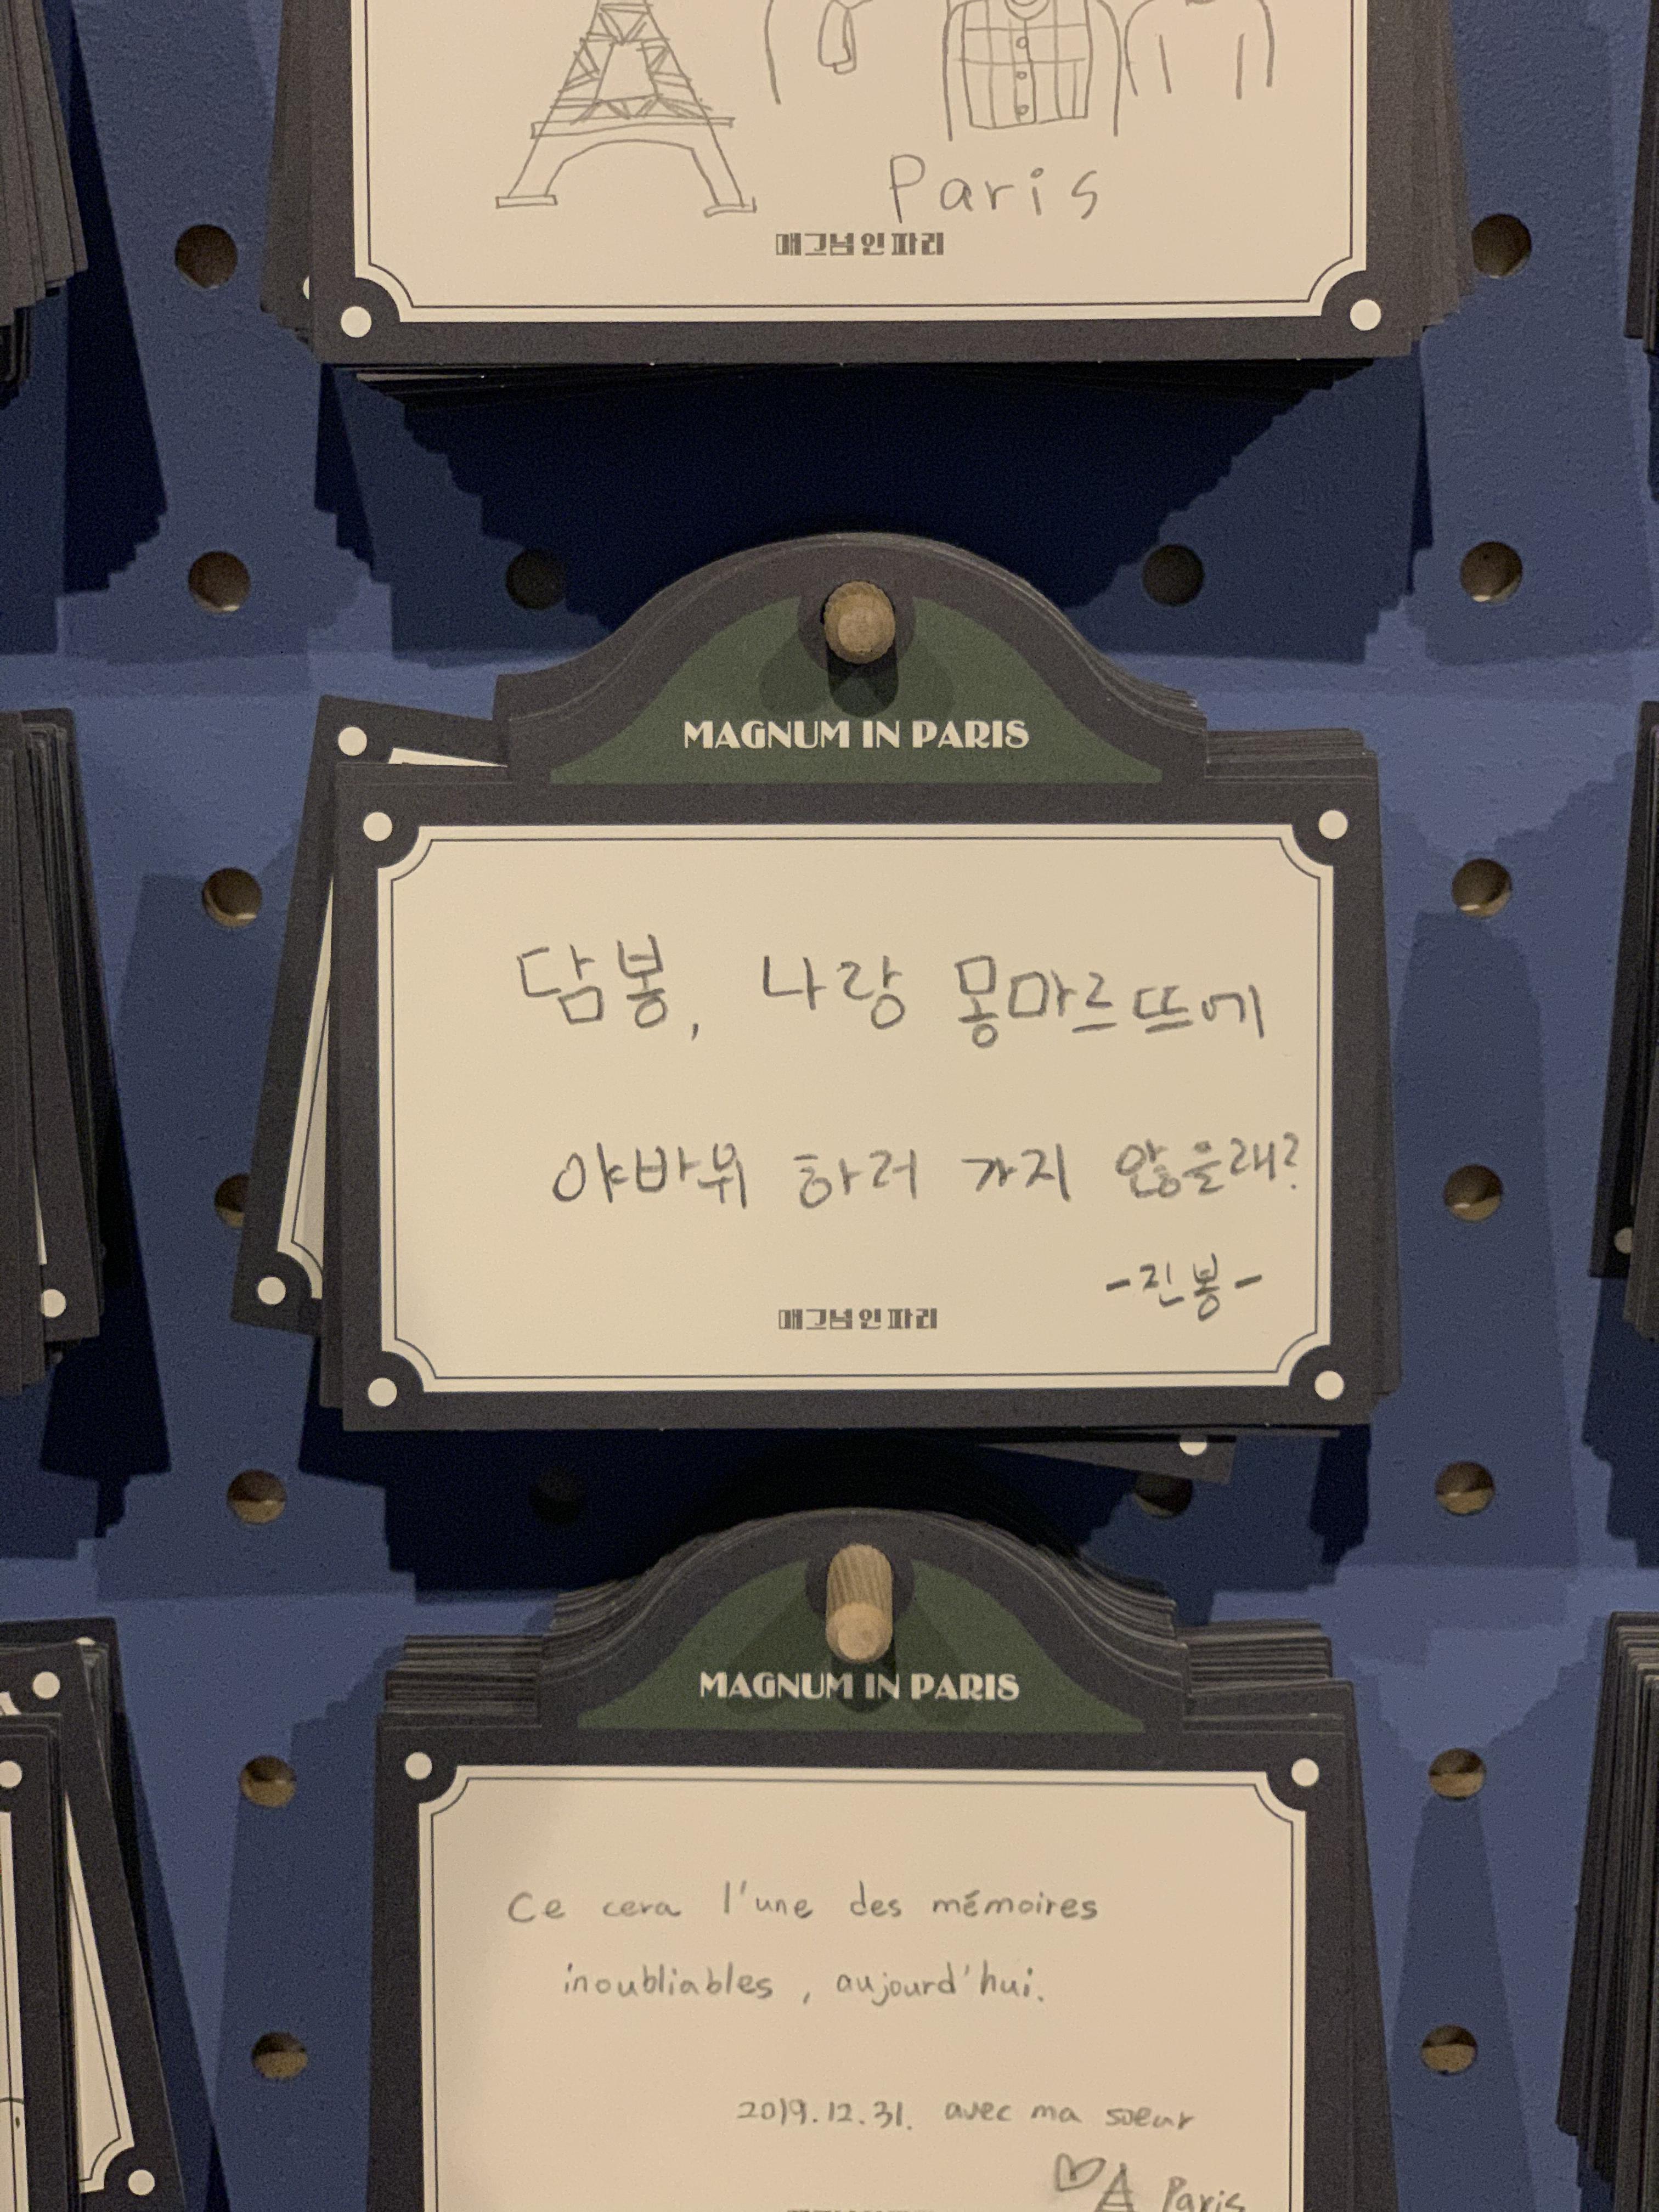 Paris
매그넘 인 파리
MAGNUM IN PARIS
담봉, 나랑 몽마르뜨에
야바위 하러 가지 않을래?
-진봉-
매그넘 인 파리
MAGNUM IN PARIS
Ce cera l'une des mémoires
inoubliables, aujourd'hui.
2019.12.31. avec ma soeur
Paris